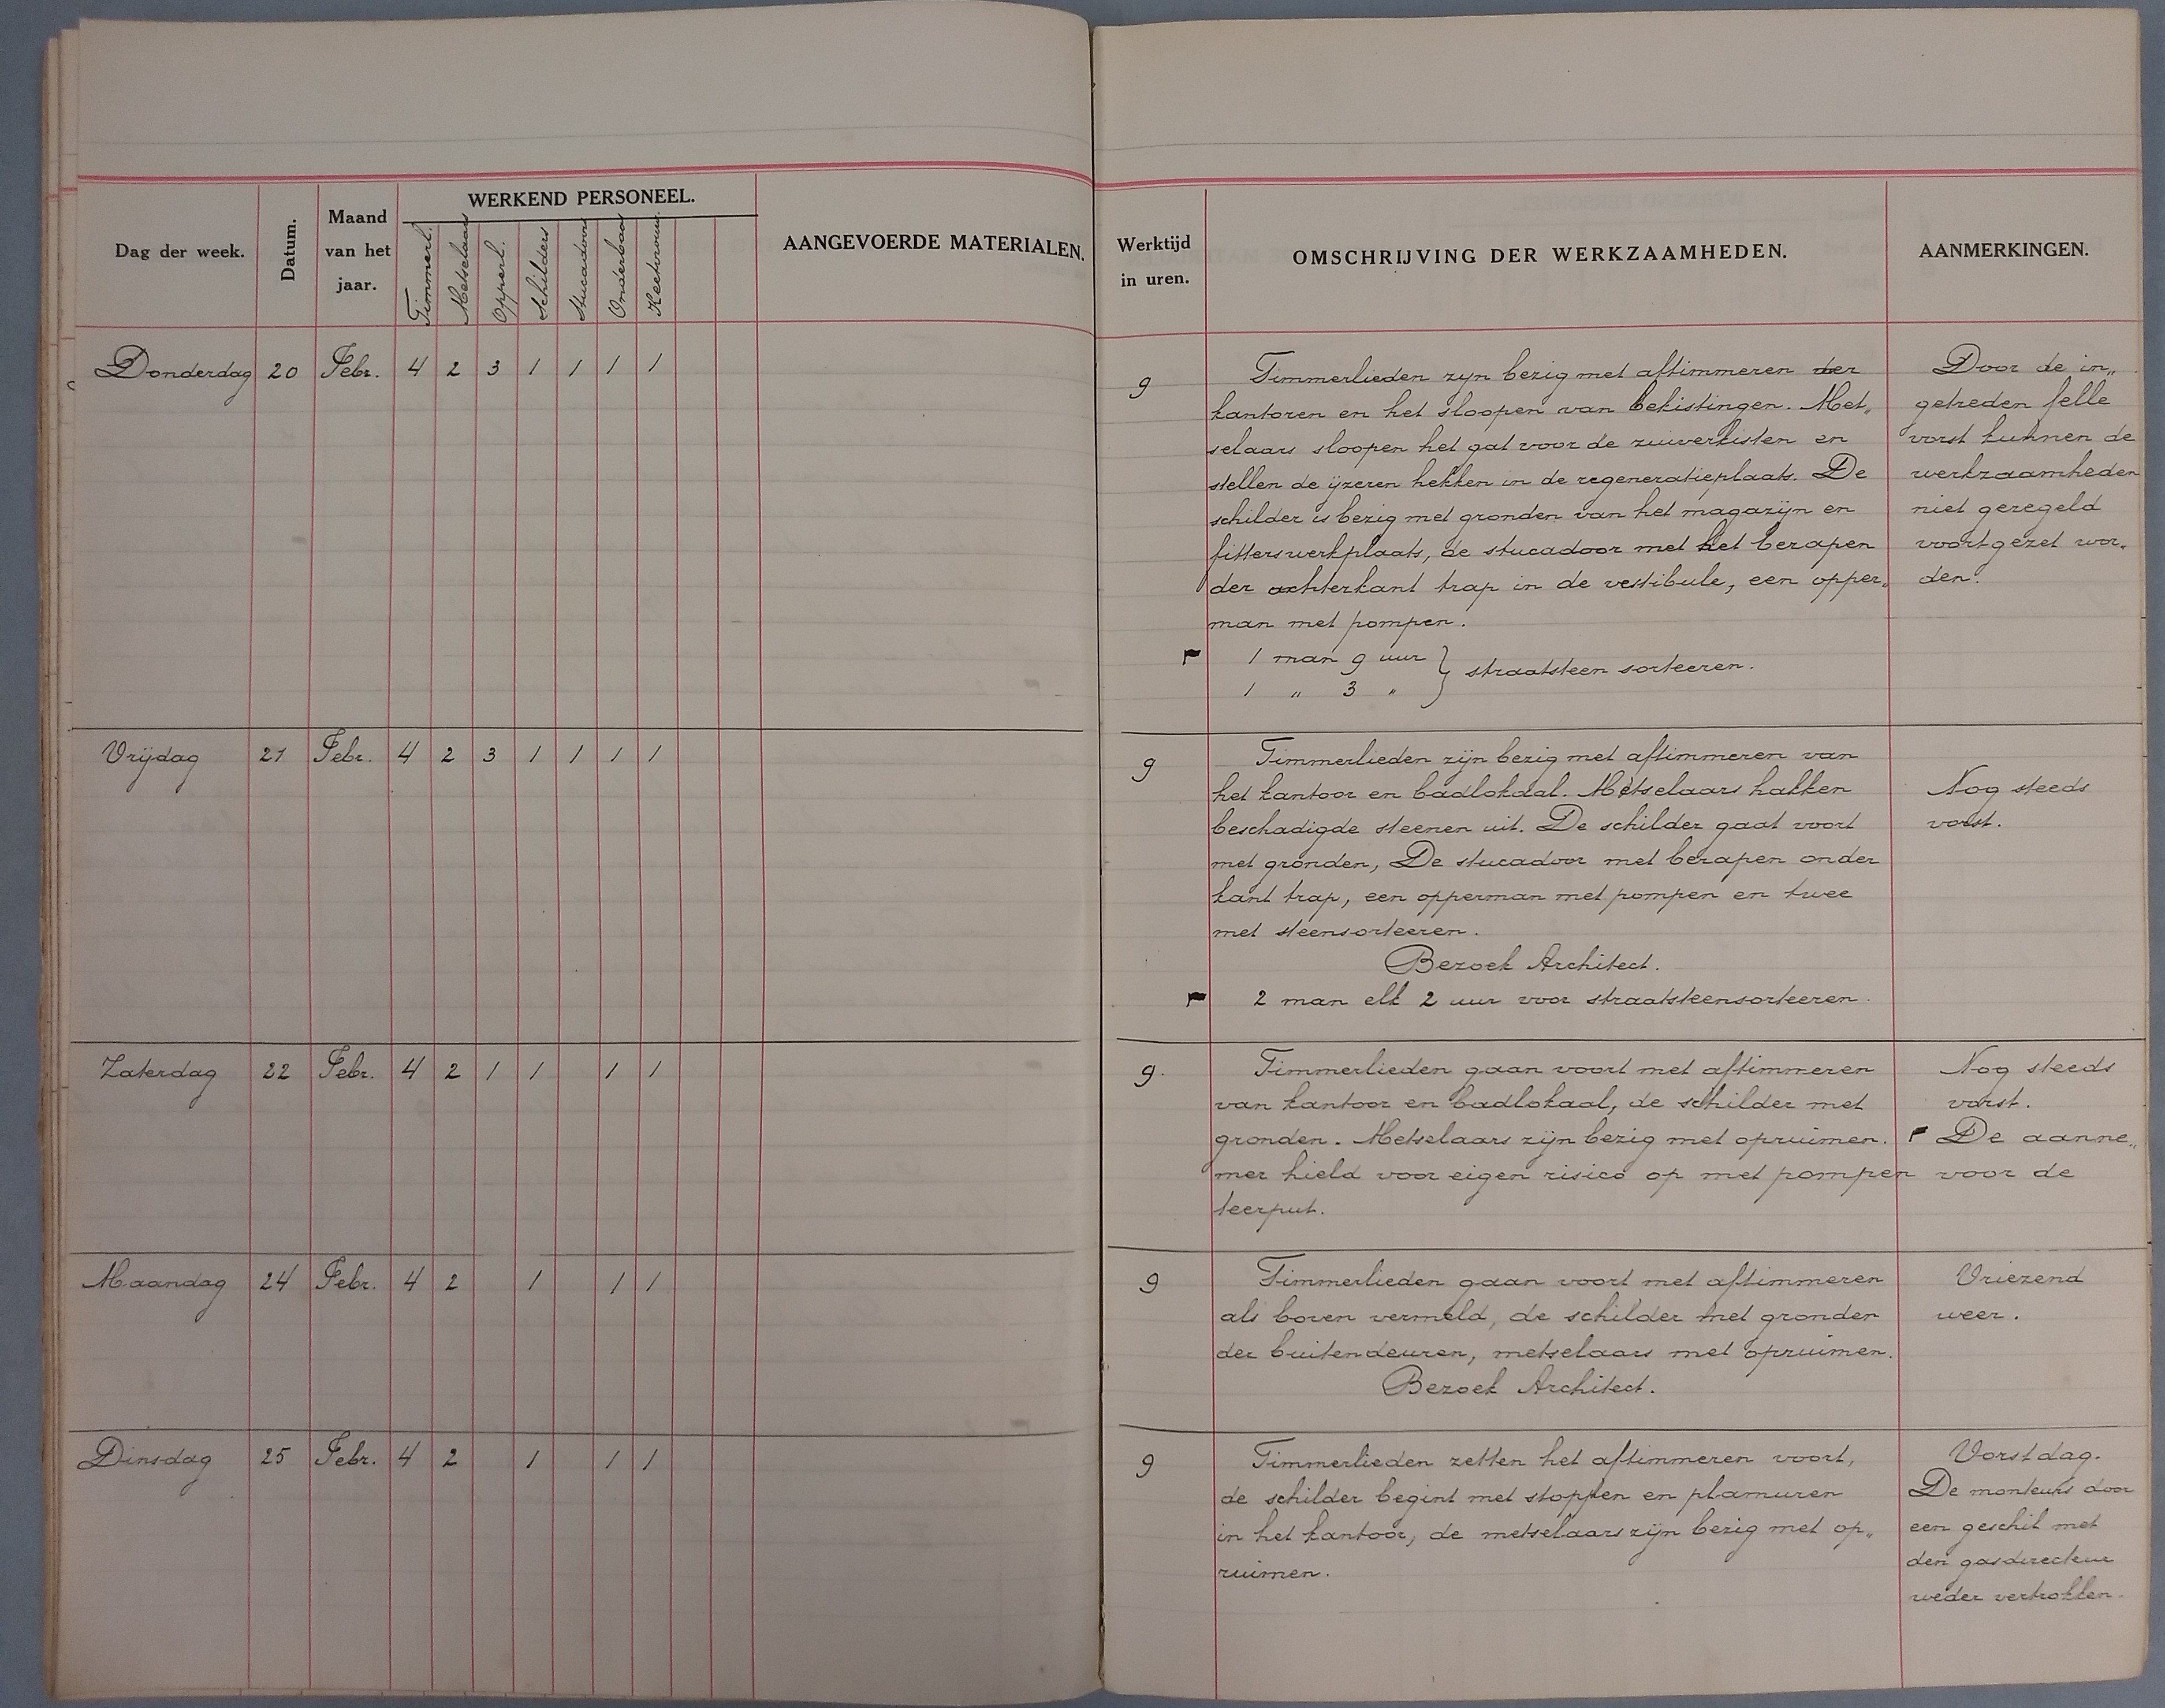 WERKEND PERSONEEL.
Dag der week. Datum. Maand van het jaar. Timmerl. Metselaars Opperl. Schilders Stucadoors Onderbaas AANGEVOERDE MATERIALEN.
Werktijd in uren. OMSCHRIJVING DER WERKZAAMHEDEN. AANMERKINGEN.
Donderdag 20 Febr. 4 2 3 1 1 1 1
9
Timmerlieden zyn bezig met aftimmeren der
kantoren en het sloopen van bekistingen. Met„
selaars sloopen het gat voor de zuiverkisten en
stellen de ijzeren hekken in de regeneratieplaats. De
schilder is bezig met gronden van het magazijn en
fitterswerkplaats, de stucadoor met het berapen
der achterkant trap in de vestibule, een opper„
man met pompen.
1 man 9 uur } straatsteen sorteeren.
1 „ 3 „
Door de in„
getreden felle
vorst kunnen de
werkzaamheden
niet geregeld
voortgezet wor„
den.
Vrijdag 21 Febr. 4 2 3 1 1 1 1
9
Timmerlieden zijn bezig met aftimmeren van
het kantoor en badlokaal. Metselaars hakken
beschadigde steenen uit. De schilder gaat voort
met gronden, De stucadoor met berapen onder
kant trap, een opperman met pompen en twee
met steensorteeren.
Bezoek Architect.
2 man elk 2 uur voor straatsteensorteeren.
Nog steeds
vorst.
Zaterdag 22 Febr. 4 2 1 1 1 1
9.
Timmerlieden gaan voort met aftimmeren
van kantoor en badlokaal, de schilder met
gronden. Metselaars zijn bezig met opruimen.
Nog steeds
vorst.
De aanne„
mer hield voor eigen risico op met pompen voor de
teerput.
Maandag 24 Febr. 4 2 1 1 1
9
Timmerlieden gaan voort met aftimmeren
als boven vermeld, de schilder met gronden
der buitendeuren, metselaars met opruimen.
Bezoek Architect.
Vriezend
weer.
Dinsdag 25 Febr. 4 2 1 1 1
9
Timmerlieden zetten het aftimmeren voort,
de schilder begint met stoppen en plamuren
in het kantoor, de metselaars zijn bezig met op„
ruimen.
Vorstdag.
De monteurs door
een geschil met
den gasdirecteur
weder vertrokken.